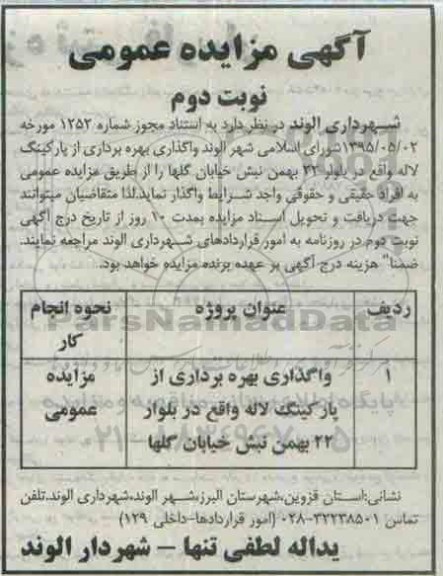 آگهی مزایده عمومی
نوبت دوم
شهرداری الوند در نظر دارد به استناد مجوز شماره ۱۲۵۲ مورخه
۱۳۹۵/۰۵/۰۲شورای اسلامی شهر الوند واگذاری بهره برداری از پارکینگ
لاله واقع در بلوار ۲۲ بهمن نبش خیابان گلها را از طریق مزایده عمومی
به افراد حقیقی و حقوقی واجد شرایط واگذار نماید.لذا متقاضیان میتوانند
جهت دریافت و تحویل اسناد مزایده بمدت ۱۰ روز از تاریخ درج آگهی
نوبت دوم در روزنامه به امور قراردادهای شهرداری الوند مراجعه نمایند.
ضمنا" هزینه درج آگهی بر عهده برنده مزایده خواهد بود.
ردیف عنوان پروژه نحوه انجام
کار
۱ واگذاری بهره برداری از مزایده
پارکینگ لاله واقع در بلوار عمومی
۲۲ بهمن نبش خیابان گلها
ParsNamadData
نشانی:استان قزوین،شهرستان البرز،شهر الوند،شهرداری الوند.تلفن
تماس ۳۲۲۳۸۵۰۱-۰۲۸ (امور قراردادها-داخلی ۱۲۹)
یداله لطفی تنها – شهردار الوند